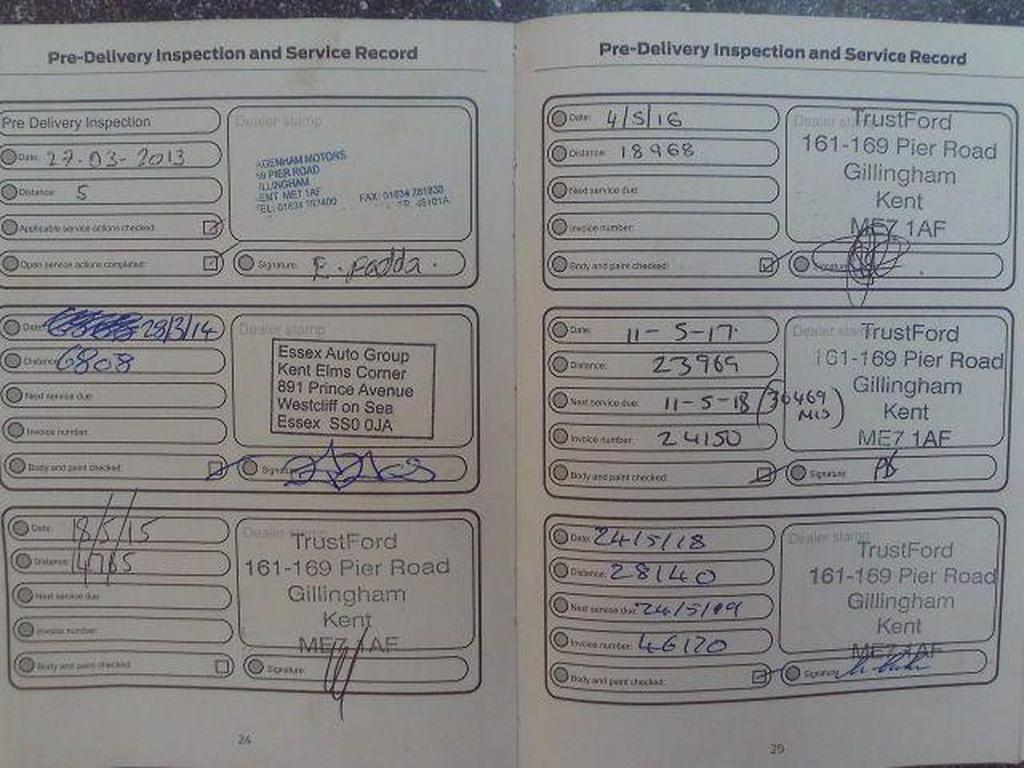 Pre-Delivery Inspection and Service Record
Pre Delivery Inspection
Date: 27-03-2013
Distance: 5
Applicable service actions checked:
Open service actions completed:
Dealer stamp
AGENHAM MOTORS
PIER ROAD
GILLINGHAM
KENT ME7 1AF
TEL: 01634 FAX: 01634
Signature: P. Fadda.
Date: 28/3/14
Distance: 6808
Next service due:
Invoice number:
Body and paint checked:
Dealer stamp
Essex Auto Group
Kent Elms Corner
891 Prince Avenue
Westcliff on Sea
Essex SS0 0JA
Signature:
Date: 18/5/15
Distance: 14765
Next service due:
Invoice number:
Body and paint checked:
Dealer stamp
TrustFord
161-169 Pier Road
Gillingham
Kent
ME7 1AF
Signature:
24
Pre-Delivery Inspection and Service Record
Date: 4/5/16
Distance: 18968
Next service due:
Invoice number:
Body and paint checked:
Dealer stamp
TrustFord
161-169 Pier Road
Gillingham
Kent
ME7 1AF
Signature:
Date: 11-5-17.
Distance: 23969
Next service due: 11-5-18 (36469 MLS)
Invoice number: 24150
Body and paint checked:
Dealer stamp
TrustFord
161-169 Pier Road
Gillingham
Kent
ME7 1AF
Signature:
Date: 24/5/18
Distance: 28140
Next service due: 24/5/19
Invoice number: 46120
Body and paint checked:
Dealer stamp
TrustFord
161-169 Pier Road
Gillingham
Kent
ME7 1AF
Signature:
25